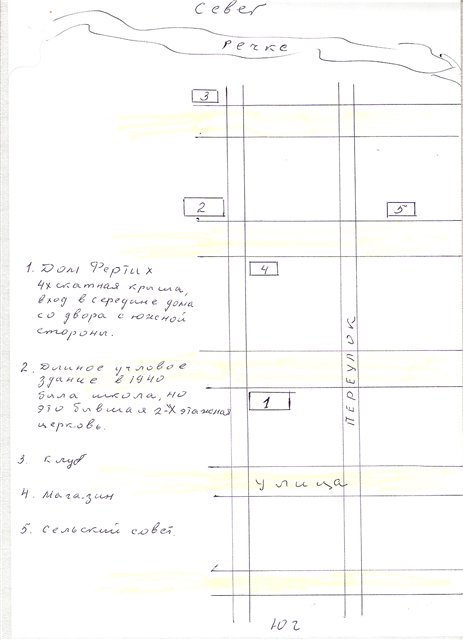 Север
Речке
3
2
5
4
1. Дом Фертих
4х скатная крыша,
вход в середине дома
со двора с южной
стороны.
ПЕРЕУЛОК
2. Длиное угловое
здание в 1940
была школа, но
это бывшая 2-х этажная
церковь.
1
3. Клуб
улица
4. Магазин
5. Сельский совет.
Юг